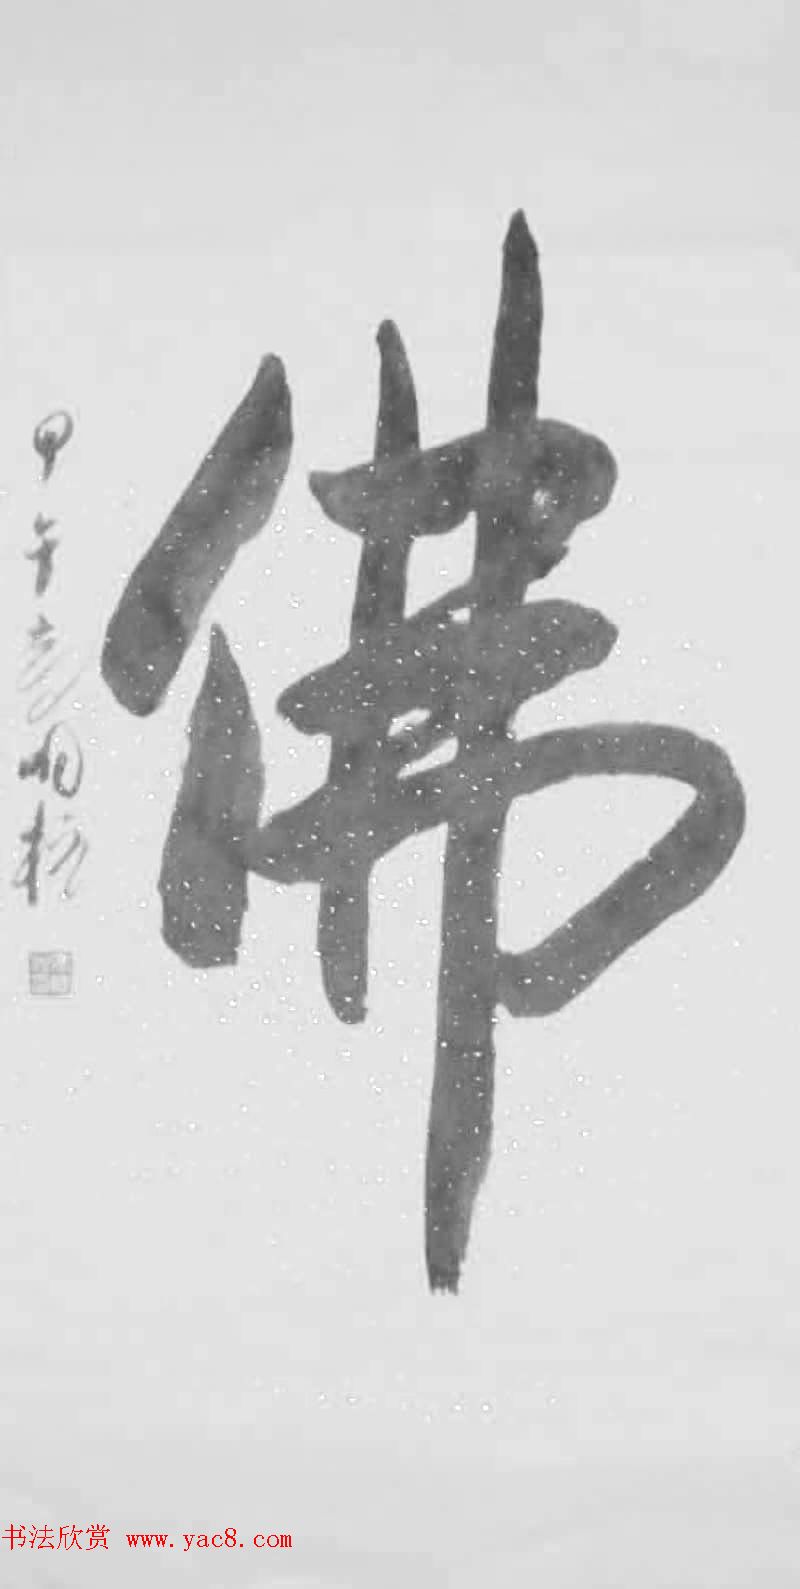 佛
甲午
书法欣赏 www.yac8.com